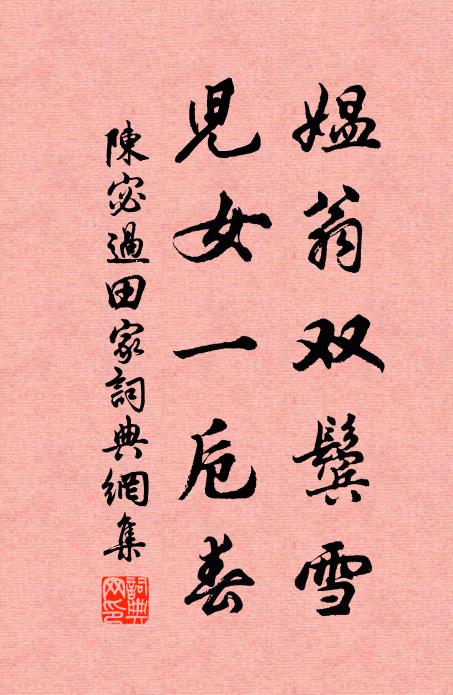 媼翁双鬓雪
兒女一卮春
陳宓過田家詞典網集
詞典網印